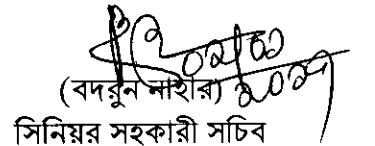 (বদরুন নাহার)
সিনিয়র সহকারী সচিব